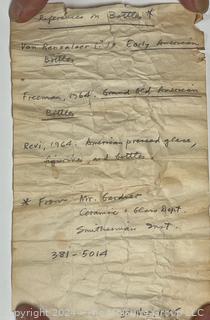 References on Bottles *
Van Rensselaer (?) Early American
Bottles
Freeman, 1964. Grand Old American
Bottles
Revi, 1964. American pressed glass,
figurines, and bottles
* From Mr. Gardner
Ceramic & Glass Dept.
Smithsonian Inst.
381-5014